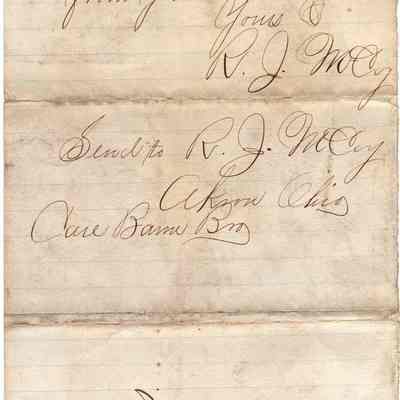 Yours &
R. J. McCoy
Send to R. J. McCoy
Akron Ohio
Care Barne Bro